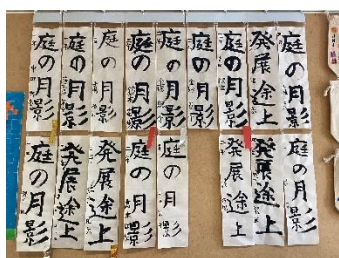 庭の月影
発展途上
庭の月影
庭の月影
庭の月影
庭の月影
庭の月影
庭の月影
庭の月影
庭の月影
発展途上
発展途上
庭の月影
庭の月影
発展途上
発展途上
庭の月影